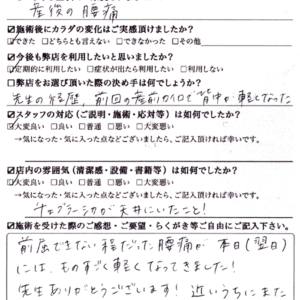 産後の腰痛
☑施術後にカラダの変化はご実感頂けましたか?
☑できた □どちらとも言えない □できなかった □その他
☑今後も弊店を利用したいと思いましたか?
☑定期的に利用したい □症状が出たら利用したい □利用しない
□弊店をお選び頂いた際の決め手は何でしょう?
先生の経歴、前回の産前カイロで背中が軽くなった
☑スタッフの対応(ご説明・施術・応対等)は如何でしたか?
☑大変良い □良い □普通 □悪い □大変悪い
→気に入った・気に入った点などございましたら、ご記入頂ければ幸いです。
☑店内の雰囲気(清潔感・設備・書籍等)は如何でしたか?
☑大変良い □良い □普通 □悪い □大変悪い
→気に入った・気に入った点などございましたら、ご記入頂ければ幸いです。
チェブラーシカが天井にいたこと!
☑施術を受けた際のご感想・ご要望・らくがき等ご自由にご記入下さい。
前屈できない程だった腰痛が 本日(翌日)
には、ものすごく軽くなってきました!
先生ありがとうございます! 近いうちにまた